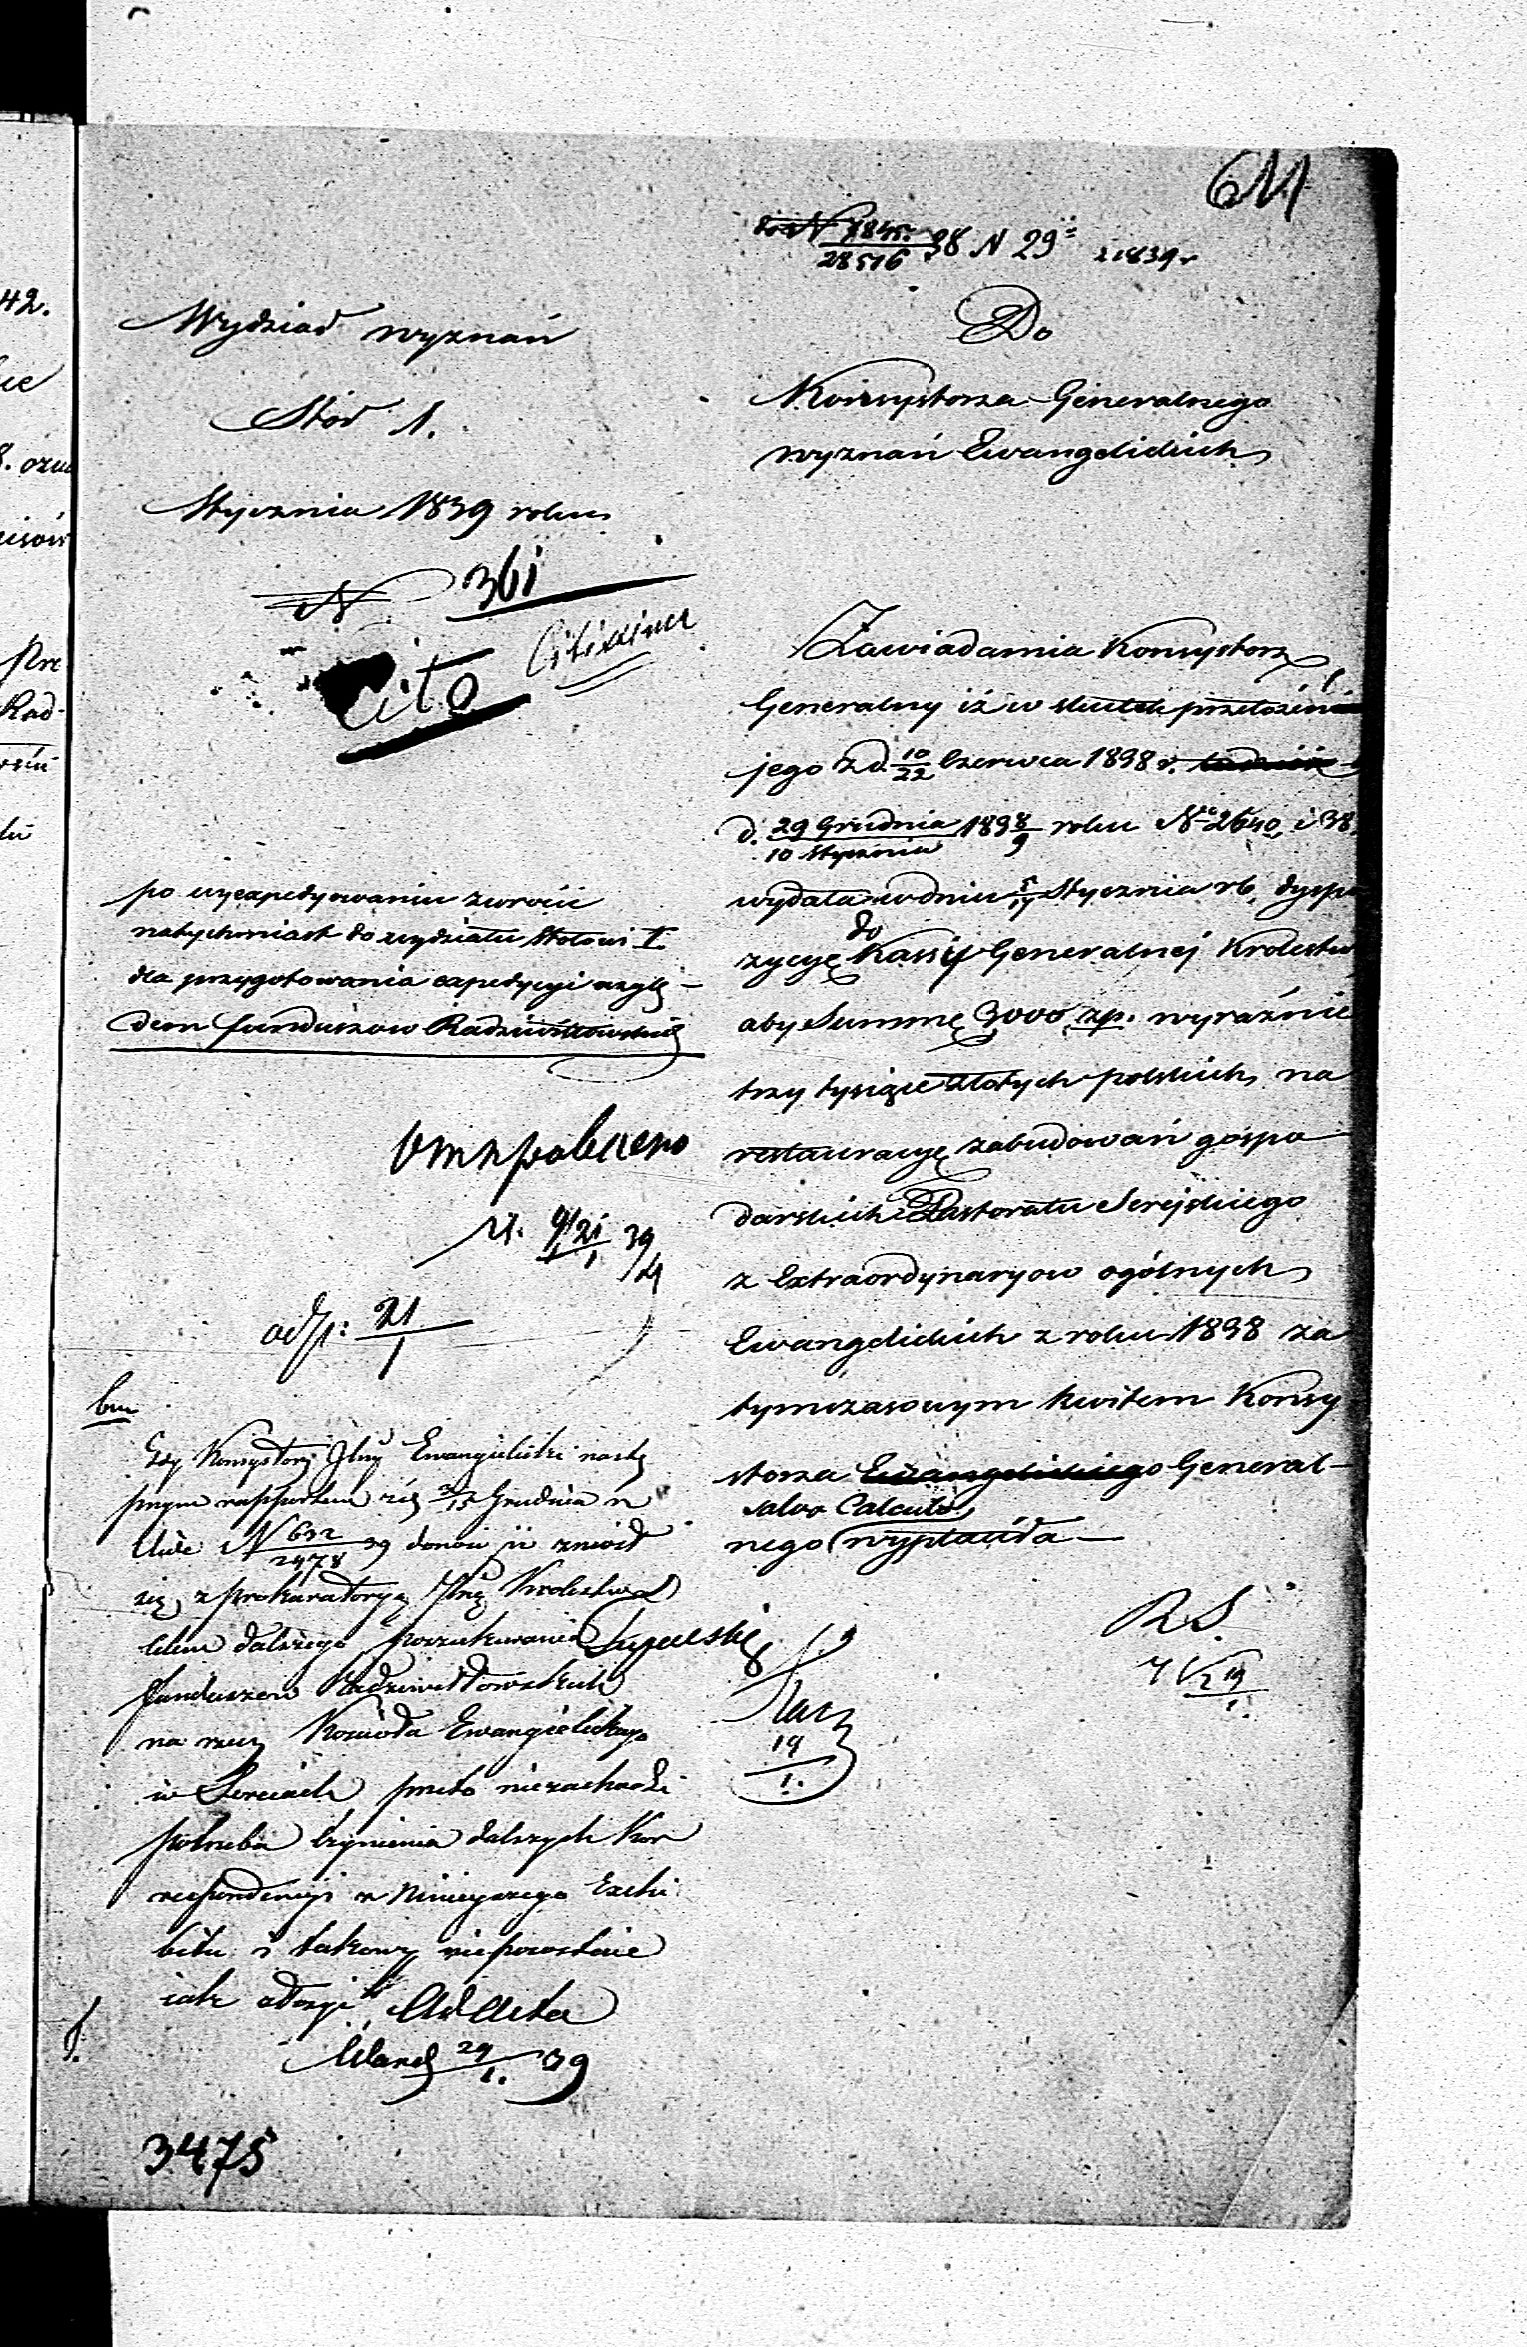 611
28516 38 N 29 z 1839 r
Wydział wyznań
Stół 1.
Stycznia 1839 roku
N 361
Cito Citissime
Do
Konsystorza Generalnego
wyznań Ewangelickich
Zawiadamia Konsystorz
Generalny iż w skutek przełożeń
jego z d. 10/22 Czerwca 1838 r.
d. 29 Grudnia/10 Stycznia 1838/9 roku № 2640 i 38
wydała w dniu Stycznia rb. dyspo
zycyę do Kassy Generalnej Królestw
aby Summę 3000 zp. wyraźnie
trzy tysiące złotych polskich na
restauracyę zabudowań gospo
darskich Pastoratu Serejskiego
z Extraordynaryow ogólnych
Ewangelickich z roku 1838 za
tymczasowym kwitem Konsy
storza Ewangelickiego General-
salvo Calculo
nego wypłaciła
R. S.
19/1.
po wyexpedyowaniu zwrócić
natychmiast do wydziału Stołowi I
dla przygotowania expedycyi wzglę-
dem funduszow Radziwiłłowskich
9/21 39
odp: 21/1
Gdy Konsystorz Glny Ewangielicki nastę
pnym rapportem Grudnia
N 632/2478 39 donosi iż zniósł
się z prokuratoryą Królestwa
celem dalszego poszukiwania
funduszow Radziwiłłowskich
na rzecz Kościoła Ewangielickiego
w Sereiach przeto niezachodzi
potrzeba czynienia dalszych Kor
respondencyi z niniejszego Exhi
bitu i takowy niepozostaie
iak złożyć Ad Acta
29/1. 39
3475